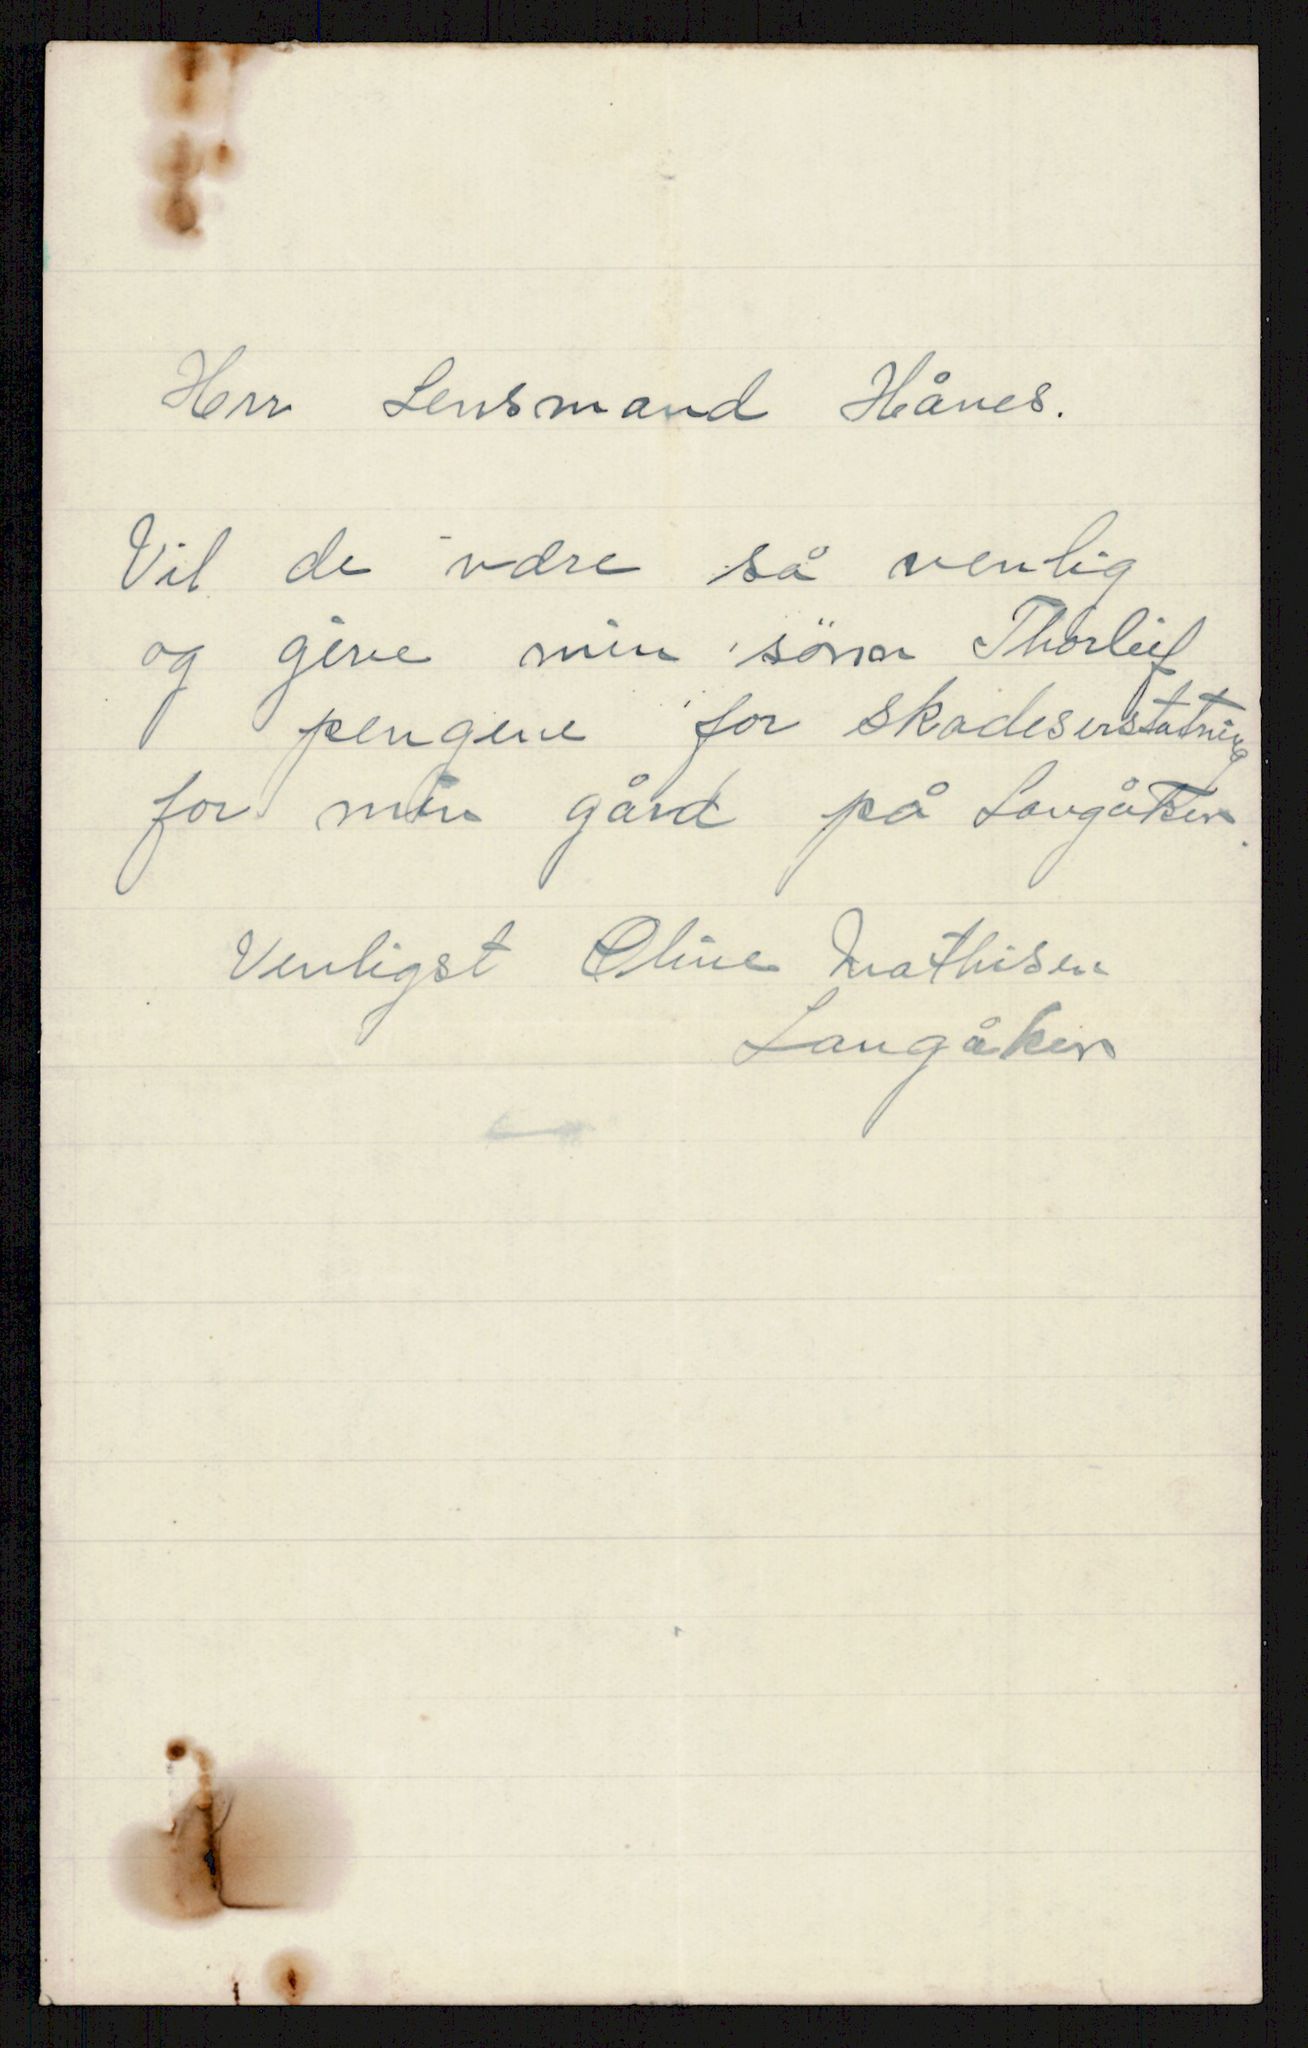 Herr Lensmand Hånes.
Vil de være så venlig
og give min sönn Thorleif
pengene for skadeserstatning
for min gård på Langåker.
Venligst Oline Mathisen
Langåker